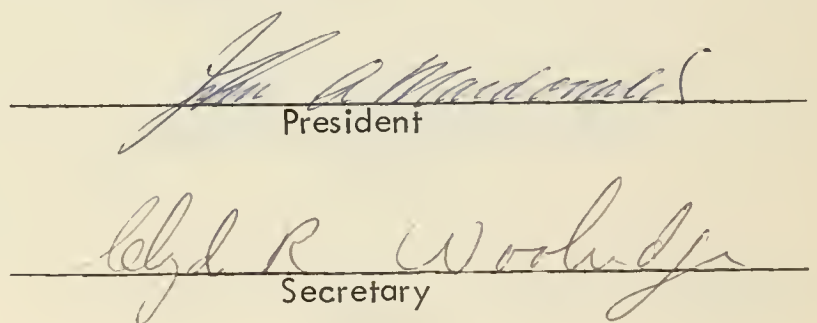 John A Macdonald
President
Clyd R Woolridge
Secretary